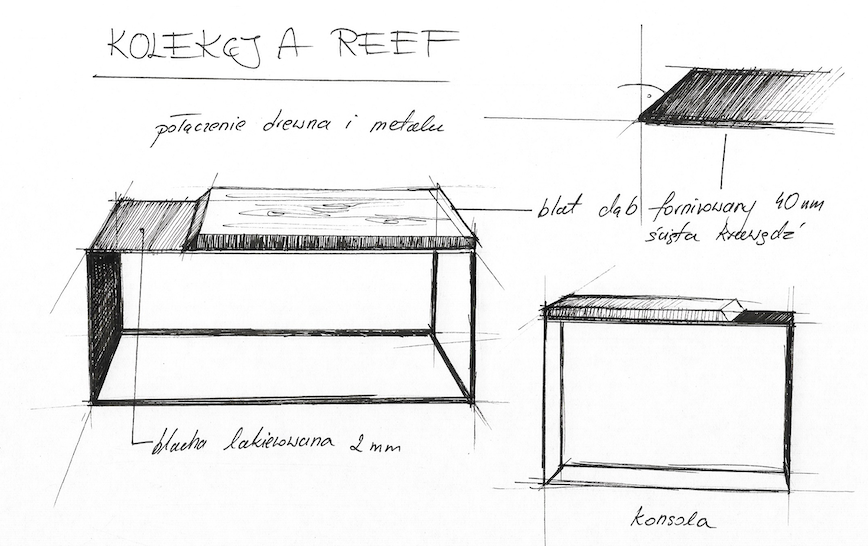 KOLEKCJA REEF
połączenie drewna i metalu
blat dąb fornirowany 40mm
ścięta krawędź
blacha lakierowana 2mm
konsola